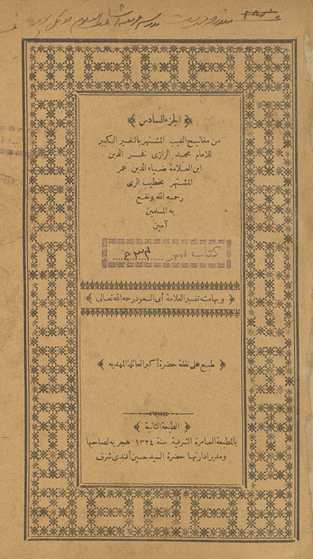 ﴿ الجزء السادس ﴾
من مفاتيح الغيب المشتهر بالتفسير الكبير
للامام محمد الرازى فخر الدين
ابن العلامة ضياء الدين عمر
المشتهر بخطيب الرى
رحمه الله ونفع
به المسلمين
آمين
كتاب نمبر
﴿ وبهامشه تفسير العلامة أبى السعود رحمه الله تعالى ﴾
﴿ طبع على نفقة حضرة أكبر العائلة المهديه ﴾
﴿ الطبعة الثانية ﴾
بالمطبعة العامرة الشرفية سنة ١٣٢٤ هجريه لصاحبها
ومدير ادارتها حضرة السيد حسين أفندى شرف